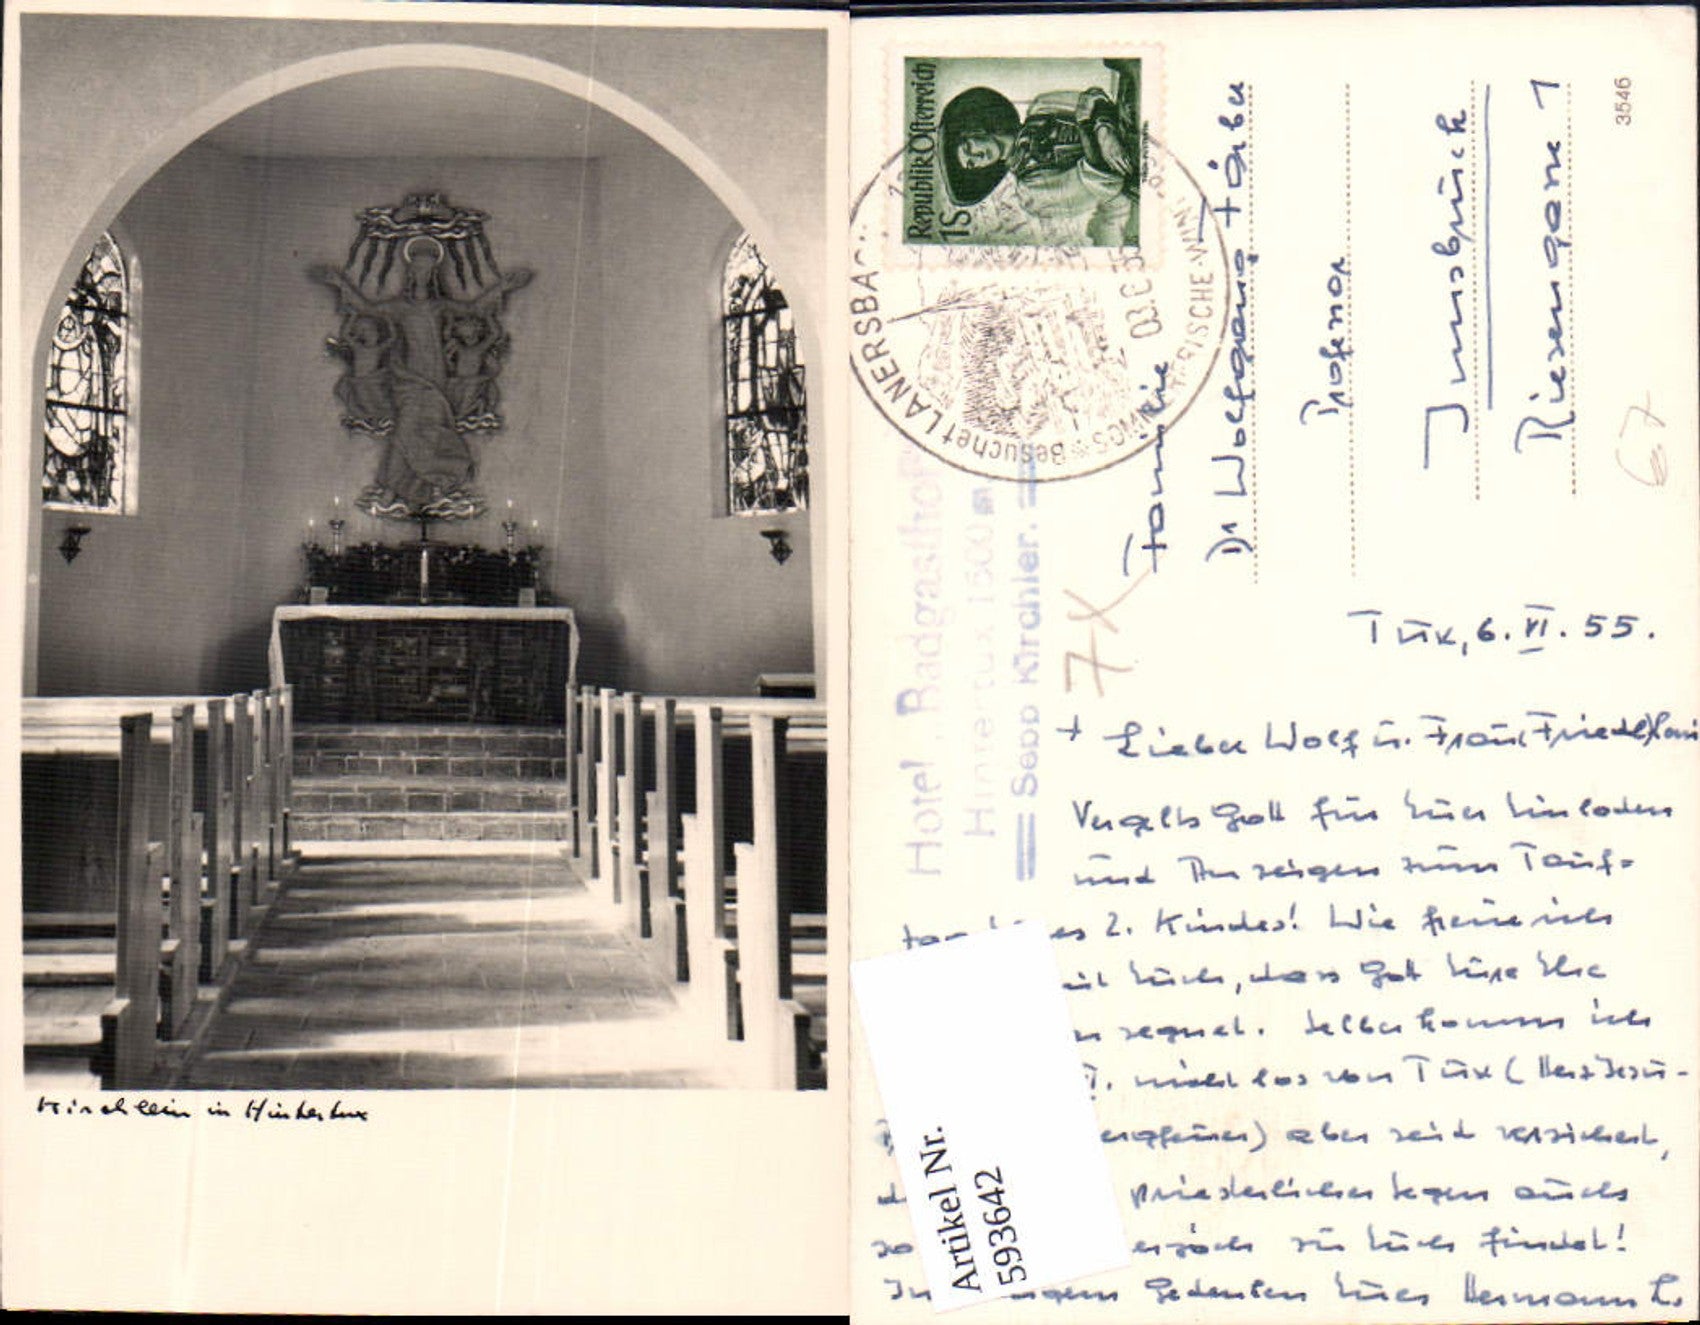 Kirchlein in Hintertux
Republik Österreich
1S
Besuchet LANERSBA
Hotel Badgasthof
Hintertux 1500 m
Sepp Kirchler.
Familie
Dr Wolfgang
Professor
Innsbruck
Riesengasse 1
3546
67
7x
Tux, 6. VI. 55.
+ Lieber Wolf u. Frau Friedel,
Vergelts Gott für Euer Einladen
und Anzeigen zum Tauf-
es 2. Kindes! Wie freue ich
mit Euch, dass Gott Eure Ehe
segnet. Selber komme ich
nicht los von Tux (Herz Jesu-
) aber seid versichert,
priesterlicher Segen auch
so zu Euch findet!
In Gedenken Euer Hermann L.
Artikel Nr.
593642